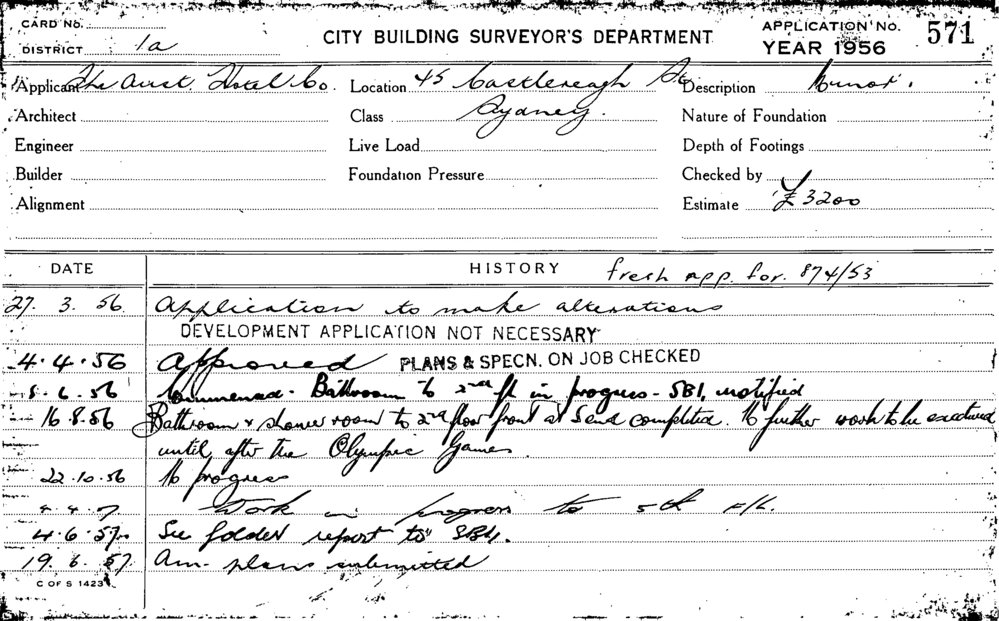 CARD No.
DISTRICT 1a
CITY BUILDING SURVEYOR'S DEPARTMENT
APPLICATION No. 571
YEAR 1956
Applicant The Aust. Hotel Co. Location 45 Castlereagh St Description Minor.
Architect Class Sydney. Nature of Foundation
Engineer Live Load Depth of Footings
Builder Foundation Pressure Checked by
Alignment Estimate £3200
DATE HISTORY fresh app. for. 874/53
27. 3. 56 Application to make alterations
DEVELOPMENT APPLICATION NOT NECESSARY
4.4.56 Approved PLANS & SPECN. ON JOB CHECKED
8.6.56 Commenced - Bathroom to 2nd fl in progress - SB1, notified
16.8.56 Bathroom & shower room to 2nd floor front at completed. No further work to be executed
until after the Olympic Games.
22.10.56 No progress
4.4.57 Work in progress to 5th fl.
4.6.57 See folder report to SB4.
19. 6. 57 Am. plans submitted
C OF S 1423